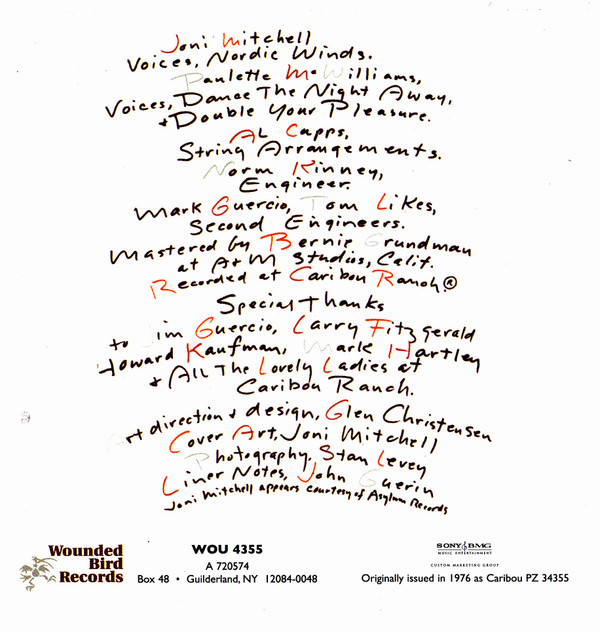 Joni Mitchell
Voices, Nordic Winds.
Paulette McWilliams,
Voices, Dance The Night Away,
+ Double Your Pleasure.
AL Capps,
String Arrangements.
Norm Kinney,
Engineer.
Mark Guercio, Tom Likes,
Second Engineers.
Mastered by Bernie Grundman
at A+M Studios, Calif.
Recorded at Caribou Ranch®
Special Thanks
to Jim Guercio, Larry Fitzgerald
Howard Kaufman, Mark Hartley
+ All The Lovely Ladies at
Caribou Ranch.
Art direction + design, Glen Christensen
Cover Art, Joni Mitchell
Photography, Stan Levey
Liner Notes, John Guerin
Joni Mitchell appears courtesy of Asylum Records
Wounded
Bird
Records
WOU 4355
A 720574
Box 48 • Guilderland, NY 12084-0048
SONY BMG
MUSIC ENTERTAINMENT
CUSTOM MARKETING GROUP
Originally issued in 1976 as Caribou PZ 34355